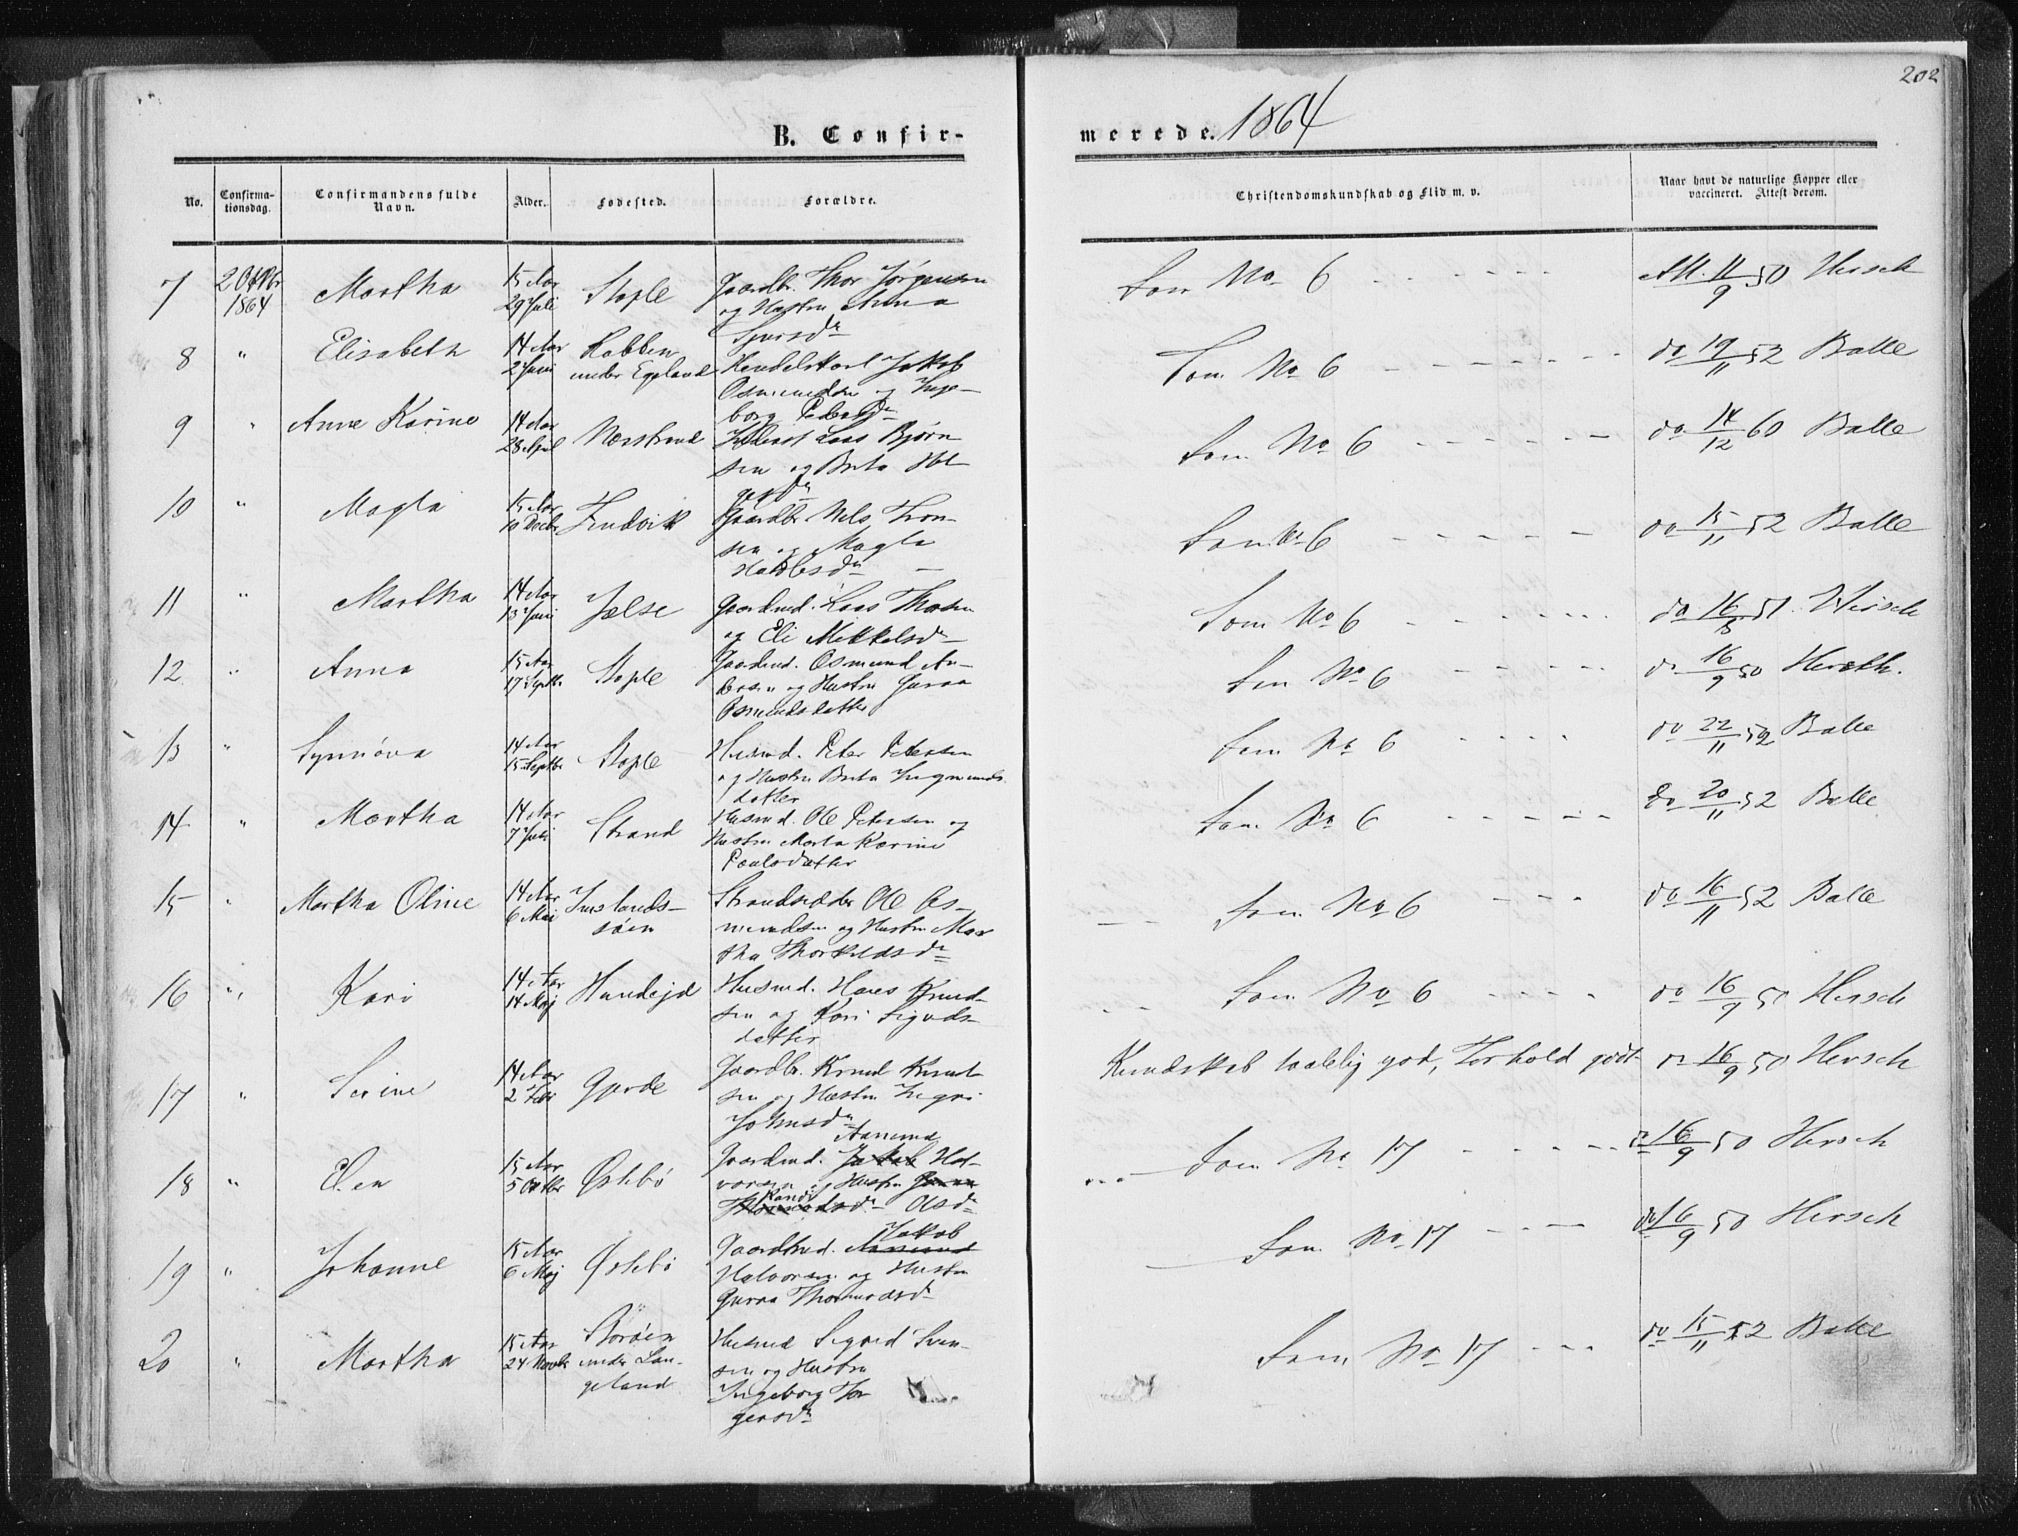 202
B. Confir- merede. 1864
No. Confirma-tionsdag. Confirmandens fulde Navn. Alder. Fødested. Forældre. Christendomskundskab og Flid m. v. Naar havt de naturlige Kopper eller vaccineret. Attest derom.
7 2 Octbr 1864 Martha 15 Aar 29 Juli Stople Gaardbr. Thor Jørgensen og Hustru Anna Sjursdr Som No 6 - - - - - Att. 11/9 50 Hersch
8 " Elisabeth 14 Aar 2 Juni Kobben under Egeland Jakob Osmundsen og Inge-borg Pedersdr Som No 6 - - - - - do 19/11 52 Balle
9 " Anne Karine 14 Aar 28 April Nerstrand Lars Bjørn-sen og Berta Hel-gesdr Som No 6 - - - - - do 14/12 60 Balle
10 " Magla 15 Aar 10 Decbr Gaardbr Nels Tron-sen og Magla Som No 6 - - - - - do 15/11 52 Balle
11 " Martha 14 Aar 13 Juni Jelse Gaardmd. Lars og Eli Mikkelsdr Som No 6 - - - - - do 16/8 51. Hersch
12 " Anna 15 Aar 17 Septbr Stople Gaardmd. Osmund An-dersen og Hustru Guroa Osmundsdatter Som No 6 - - - - do 16/9 50 Hersch.
13 " Synnøva 14 Aar 15 Septbr Stople Husmd. Peter Petersen og Hustru Berta Sigmunds-datter Som No 6 - - - - do 22/11 52 Balle
14 " Martha 14 Aar 7 Juli Strand Husmd. Ole Petersen og Hustru Marta Karine Paulsdatter Som No 6 - - - - - do 20/11 52 Balle
15 " Martha Oline 14 Aar 6 Mai Imslands-søen Strandsidder Ole As-mundsen og Hustru Mar-tha Thorkildsdr Som No 6 - - - do 16/11 52 Balle
16 " Kari 14 Aar 14 Maj Hundejd Husmd. Hans Knud-sen og Kari Sigvds-datter Som No 6 - - - - do 16/9 50 Hersch
17 " Serine 14 Aar 2 Febr Gjerde Gaardbr. Knud Knud-sen og Hustru Sigri Johnsdr Kundskab taalelig god, Forhold godt do 16/9 50 Hersch
18 " Elen 15 Aar 5 Octbr Østebø Gaardmd. Jakob Aamund Hal-vorsen og Hustru Guroa Thormodsdr Randi Olsdr Som No 17 - - - - - do 16/9 50 Hersch
19 " Johanne 15 Aar 6 Maj Østebø Gaardmd. Aamund Jakob Halvorsen og Hustru Guroa Thormodsdr Som No 17 - - - - do 16/9 50 Hersch
20 " Martha 15 Aar 24 Novbr Storøen under Lan-geland Husmd Sigvd Sven-sen og Hustru Ingeborg Tor-gersdr Som No 17 - - - do 15/11 52 Balle